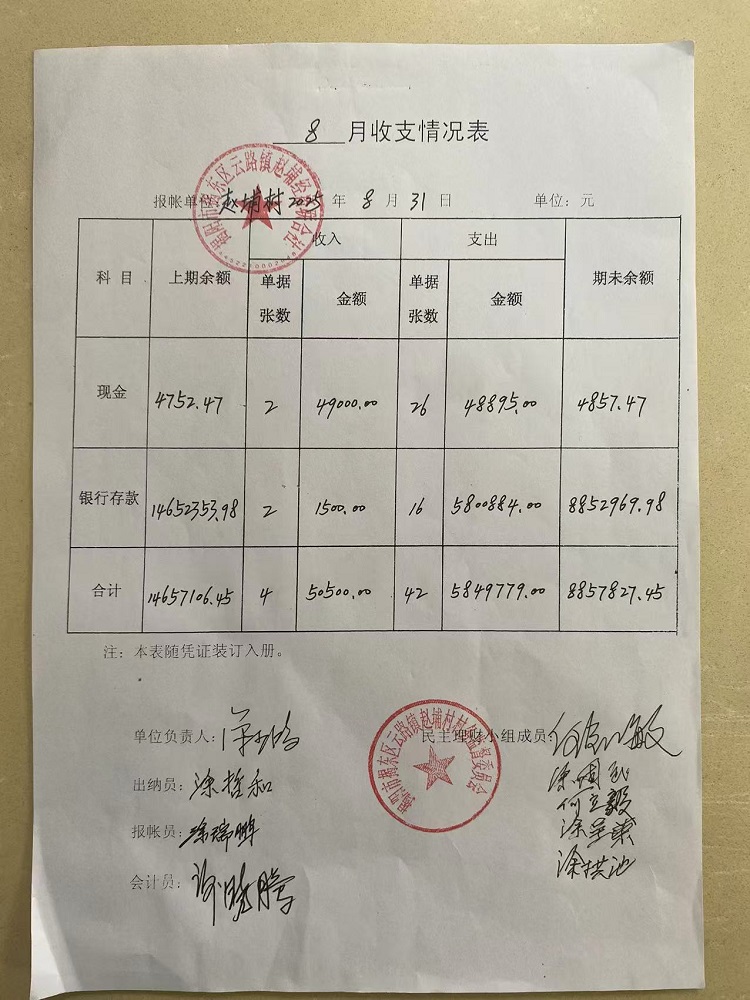 8 月收支情况表
报帐单位: 赵埔村 2025 年 8 月 31 日 单位: 元
揭阳市揭东区云路镇赵埔经济联合社
科 目 上期余额 收入 支出 期未余额
单据张数 金额 单据张数 金额
现金 4752.47 2 49000.00 26 48895.00 4857.47
银行存款 14652353.98 2 1500.00 16 5800884.00 8852969.98
合计 14657106.45 4 50500.00 42 5849779.00 8857827.45
注: 本表随凭证装订入册。
单位负责人: 民主理财小组成员:
揭阳市揭东区云路镇赵埔村村务监督委员会
出纳员: 涂哲和
报帐员: 涂瑞鹏
何立毅
会计员:
涂拱池